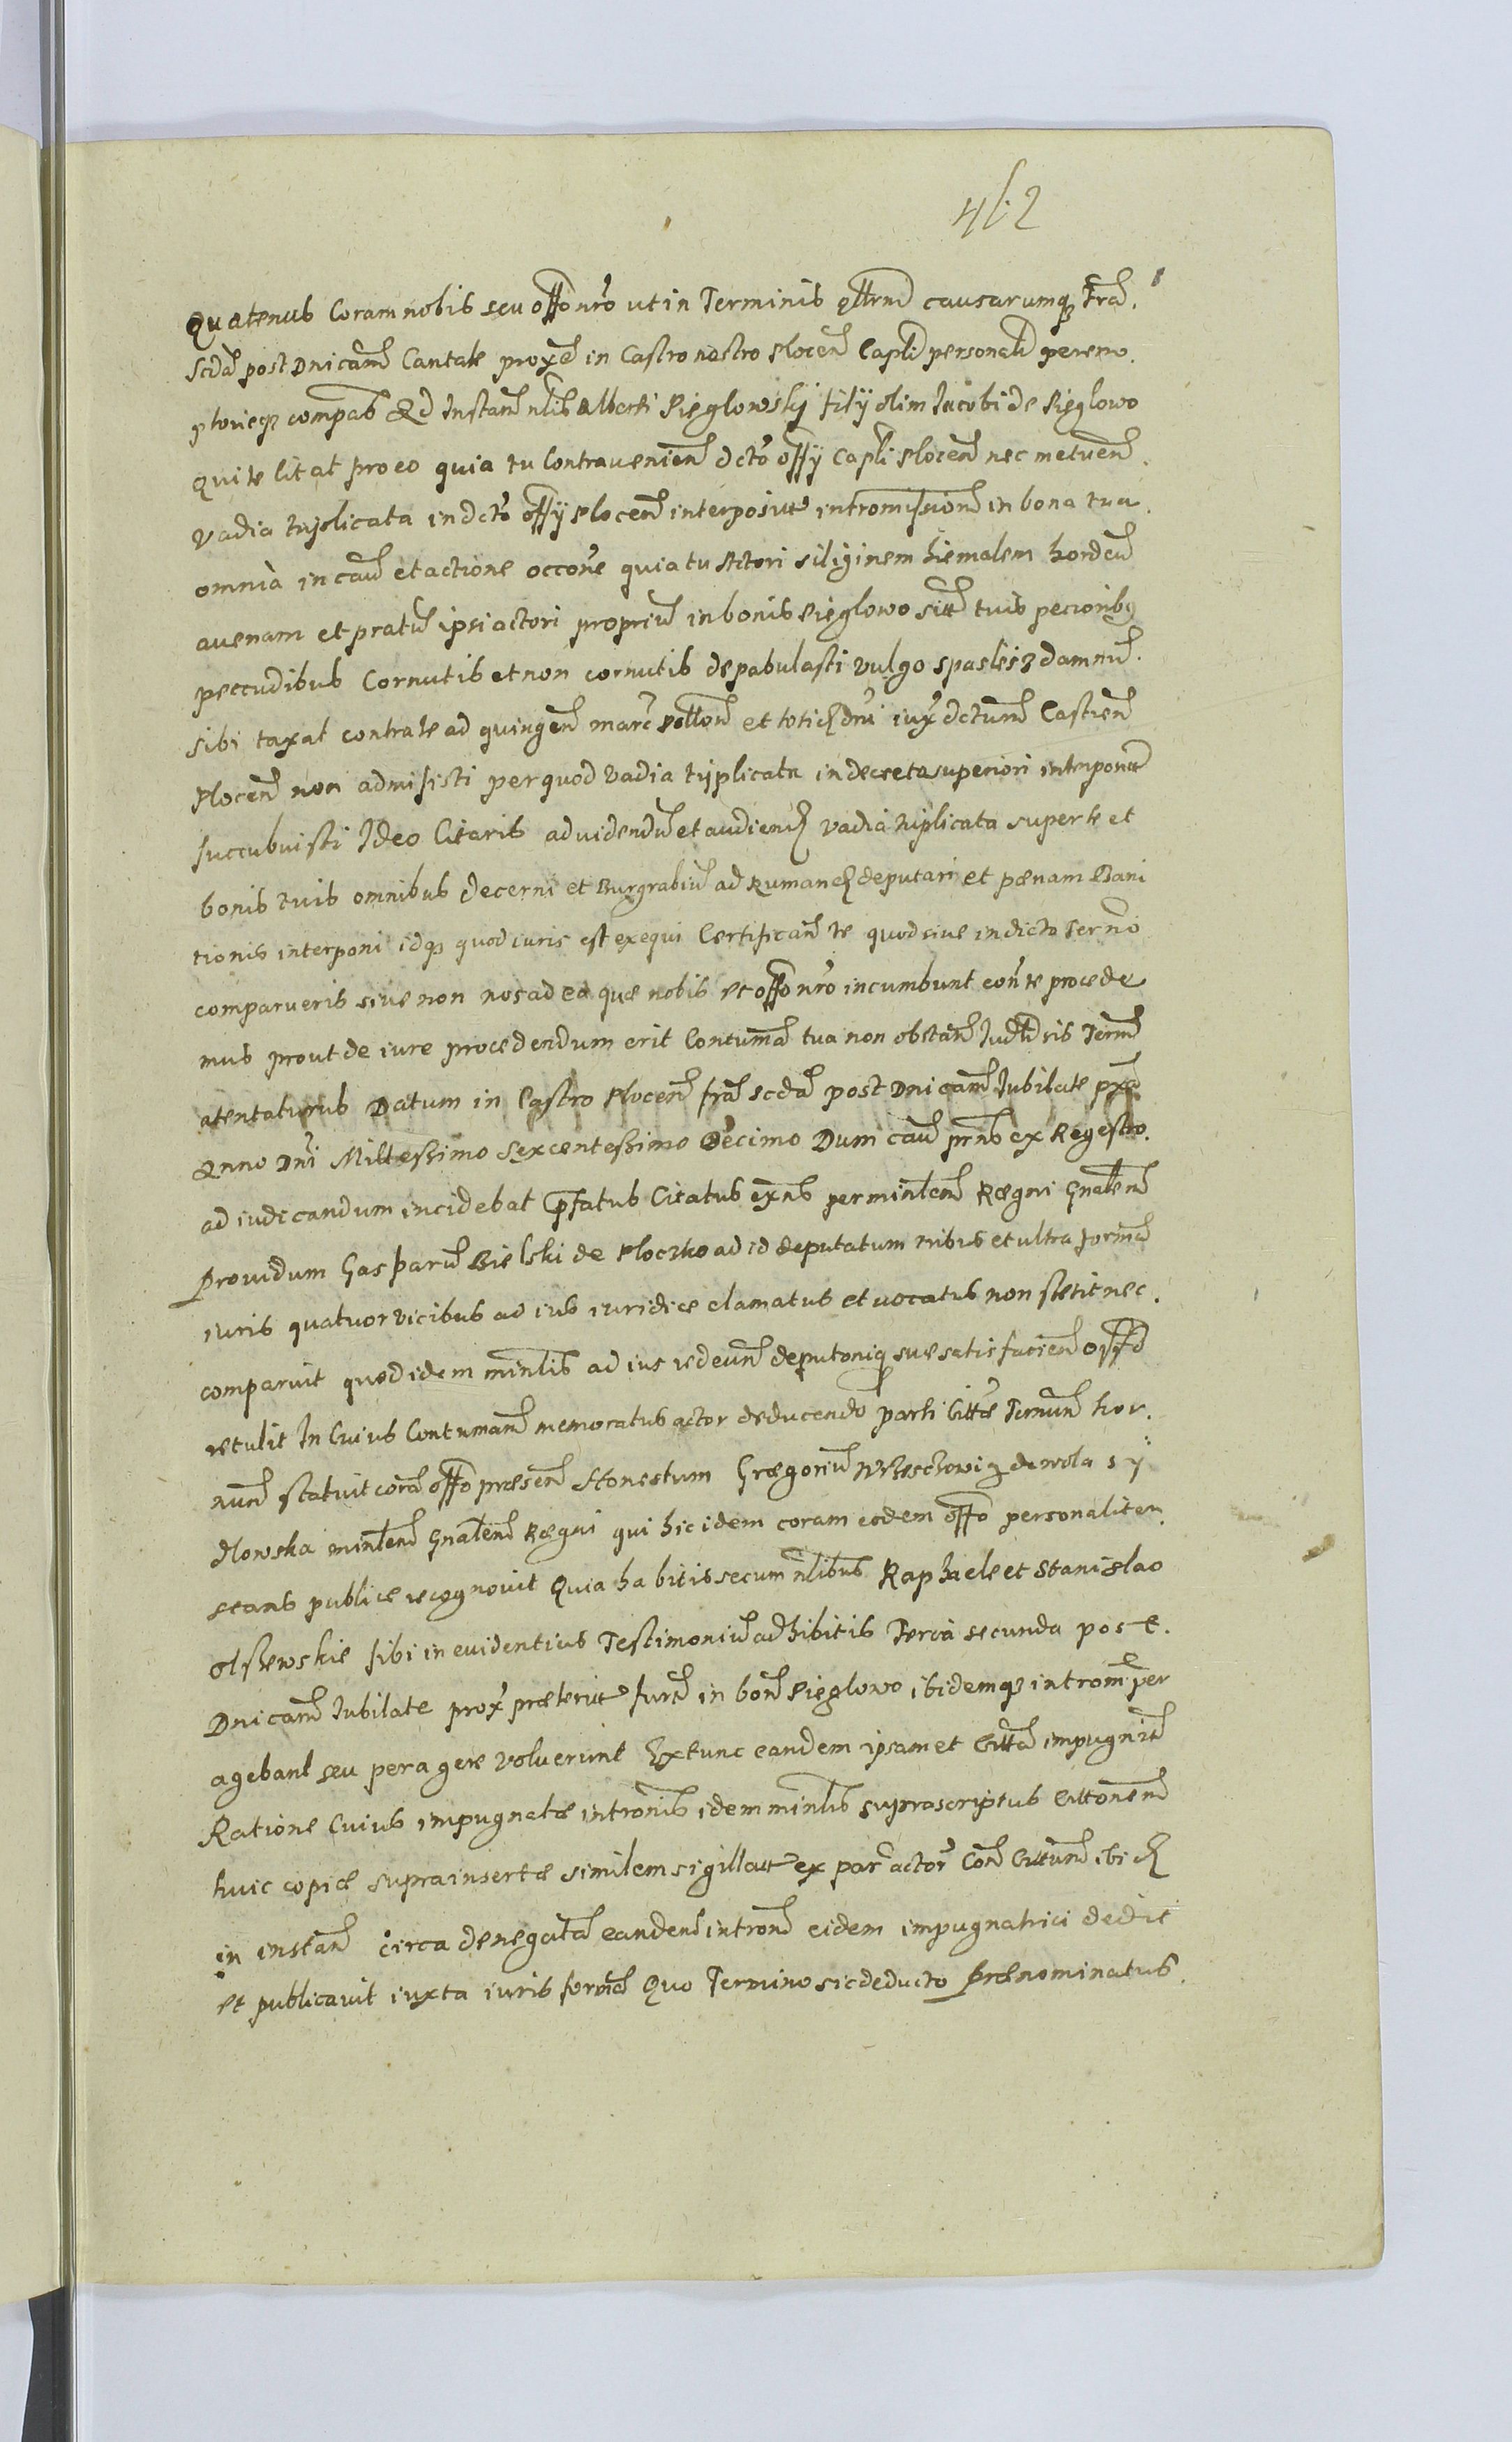 462
Quatenus Coram nobis seu offo nro ut in Terminis qttrm causarumq fra.
Scda post Dnicam Cantate proxe in Castro nostro Plocen Capli personalr perem.
ptorieqz compas Ad Instam nlis Alberti Pięglowskÿ filÿ olim Jacobi de Pięglowo
qui te litat pro eo quia tu Contravenien dcto offÿ Capli Plocen nec metuen.
vadia triplicata in dcto offÿ Plocen interposita intromissionem in bona tua.
omnia in cau et actione occone quia tu Actori siliginem hiemalem hordeu
avenam et pratu ipsi actori propriu in bonis Pięglowo sitt tuis pecoribq
peccudibus Cornutis et non cornutis depabulasti vulgo spasłesz damnu.
sibi taxat contra te ad quingen marc pollon et totid dni iux dctum Castren
Plocen non admisisti per quod vadia triplicata in decreto superiori interponit
succubuisti Ideo Citaris ad videndu et audiend vadia triplicata super te et
bonis tuis omnibus decerni et Burgrabiu ad Rumand deputari et pænam Bani
tionis interponi idqz quod iuris est exequi Certifican te quod sive in dicto termo
comparueris sive non nos ad ea quæ nobis et offo nro incumbunt con te procede
mus prout de iure procedendum erit Contuma tua non obstan Judlr sis Term
atentaturus Datum in Castro Plocen fra scda post Dnicam Jubilate pxa
Anno Dni Millessimo Sexcentessimo Decimo Dum cau prns ex Regestro.
ad iudicandum incidebat Pfatus Citatus exns per minlem Rægni Gnalem
Providum Gasparu Bielski de Ploczko ad id deputatum tribus et ultra forma
iuris quatuor vicibus ad ius iuridice clamatus et vocatus non stetit nec.
comparuit quod idem minlis ad ius redeun deputoniq suæ satisfacien offo
retulit In Cuius Contumam memoratus actor deducendo parti Cittæ Termun hor.
num statuit cora offo præsen Honestum Grægoriu de wola sy
nowska minlem Gnalem Rægni qui hic idem coram eodem offo personaliter.
steans publice recognovit Quia habitis secum nlibus Raphaele et Stanislao
olszewskie sibi in evidentius Testimoniu adhibitis Feria secunda post.
Dnicam Jubilate prox præterita fuer in bon Pięglowo ibidemqz introm per
agebant seu peragere voluerunt Extunc eandem ipsamet Citta impugnit
Ratione Cuius impugnatæ intronis idem minlis suprascriptus Cittonem
huic copiæ suprainsertæ similem sigillat ex par actor Con Cittum ibid
in instan circa denegata eandem intron eidem impugnatrici dedit
et publicavit iuxta iuris forma Quo Termino sic deducto Prænominatus.